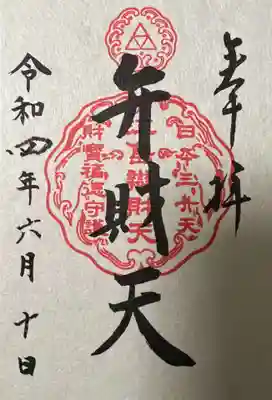 奉拝
日本三弁天
弁財天
辨財天
財寶福徳守護
令和四年六月十日